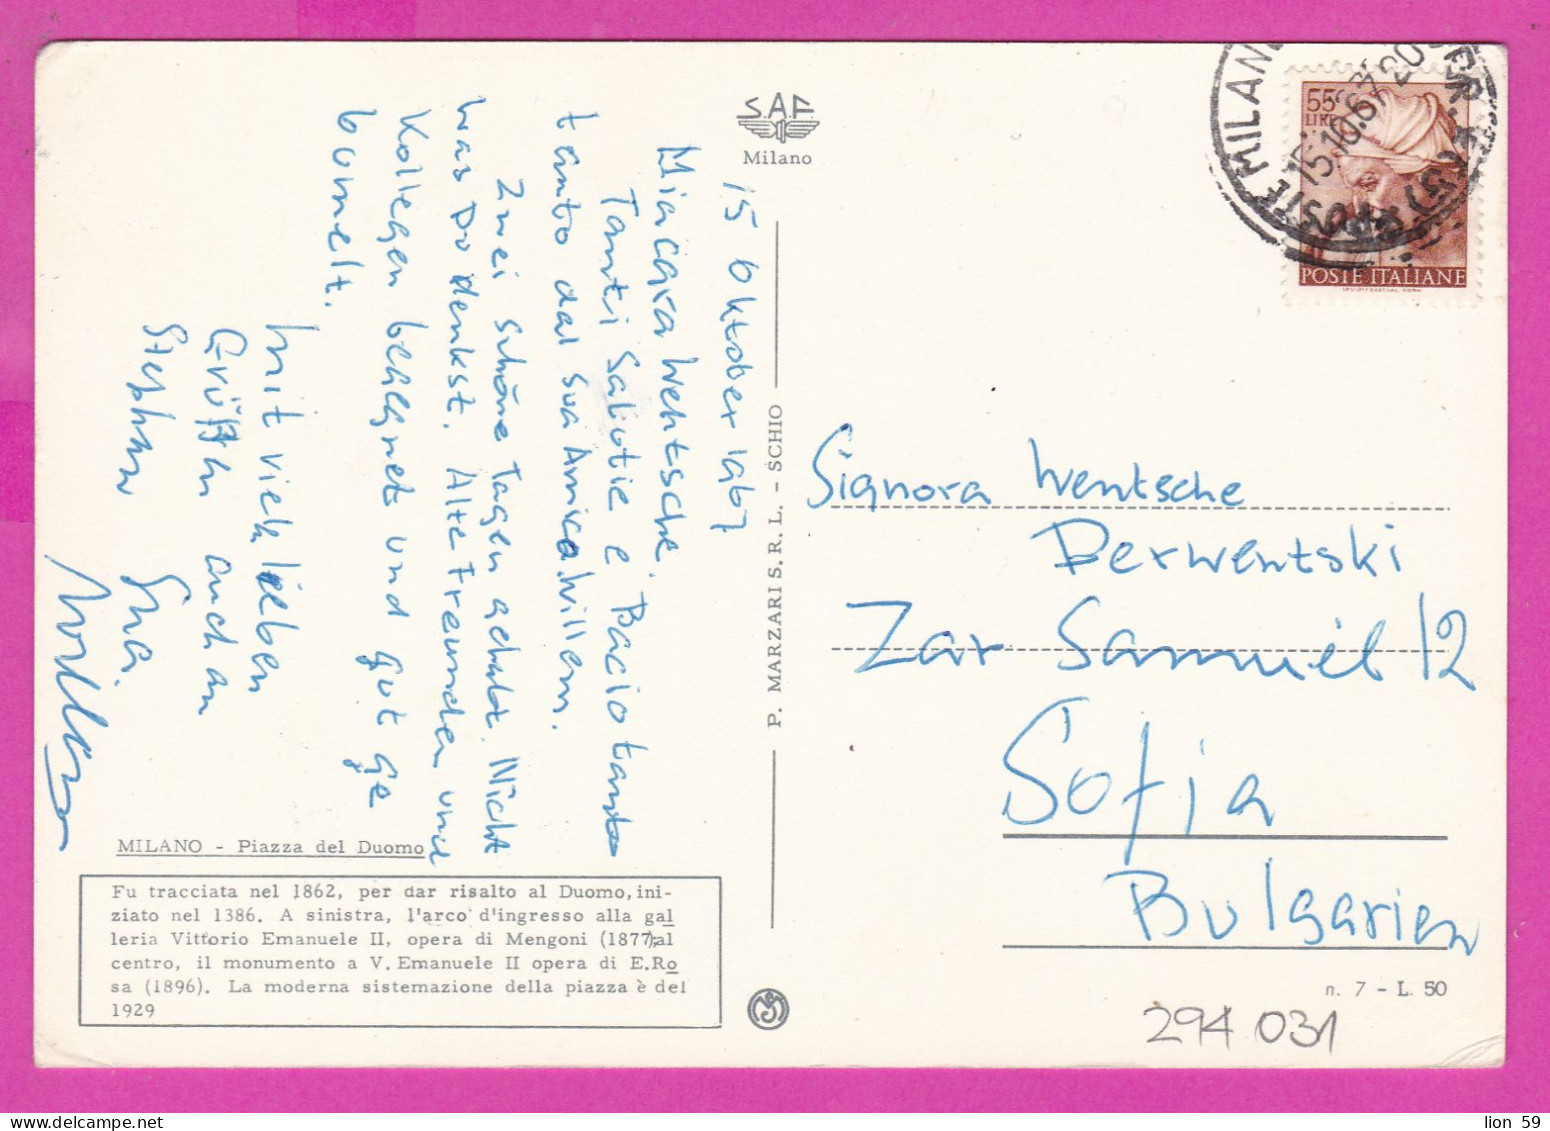 S.A.F.
Milano
15 Oktober 1967
Mia cara Wentsche.
Tanti Salutie e Bacio tanto
tanto dal sua Amica Willem.
Zwei schöne Tagen gehabt. Nicht
was Du denkst. Alte Freunden und
Kollegen begegnet und gut ge
bumelt.
Mit viele lieben
Grüßen auch an
Stephan
MILANO - Piazza del Duomo
Fu tracciata nel 1862, per dar risalto al Duomo, ini-
ziato nel 1386. A sinistra, l'arco d'ingresso alla gal
leria Vittorio Emanuele II, opera di Mengoni (1877);al
centro, il monumento a V. Emanuele II opera di E.Ro
sa (1896). La moderna sistemazione della piazza è del
1929
P. MARZARI S. R. L. - SCHIO
55
LIRE
POSTE ITALIANE
POSTE MILANO
15.10.67 20
Signora Wentsche
Derwentski
Zar Samuel 12
Sofia
Bulgarien
n. 7 - L. 50
294 031
lion 59